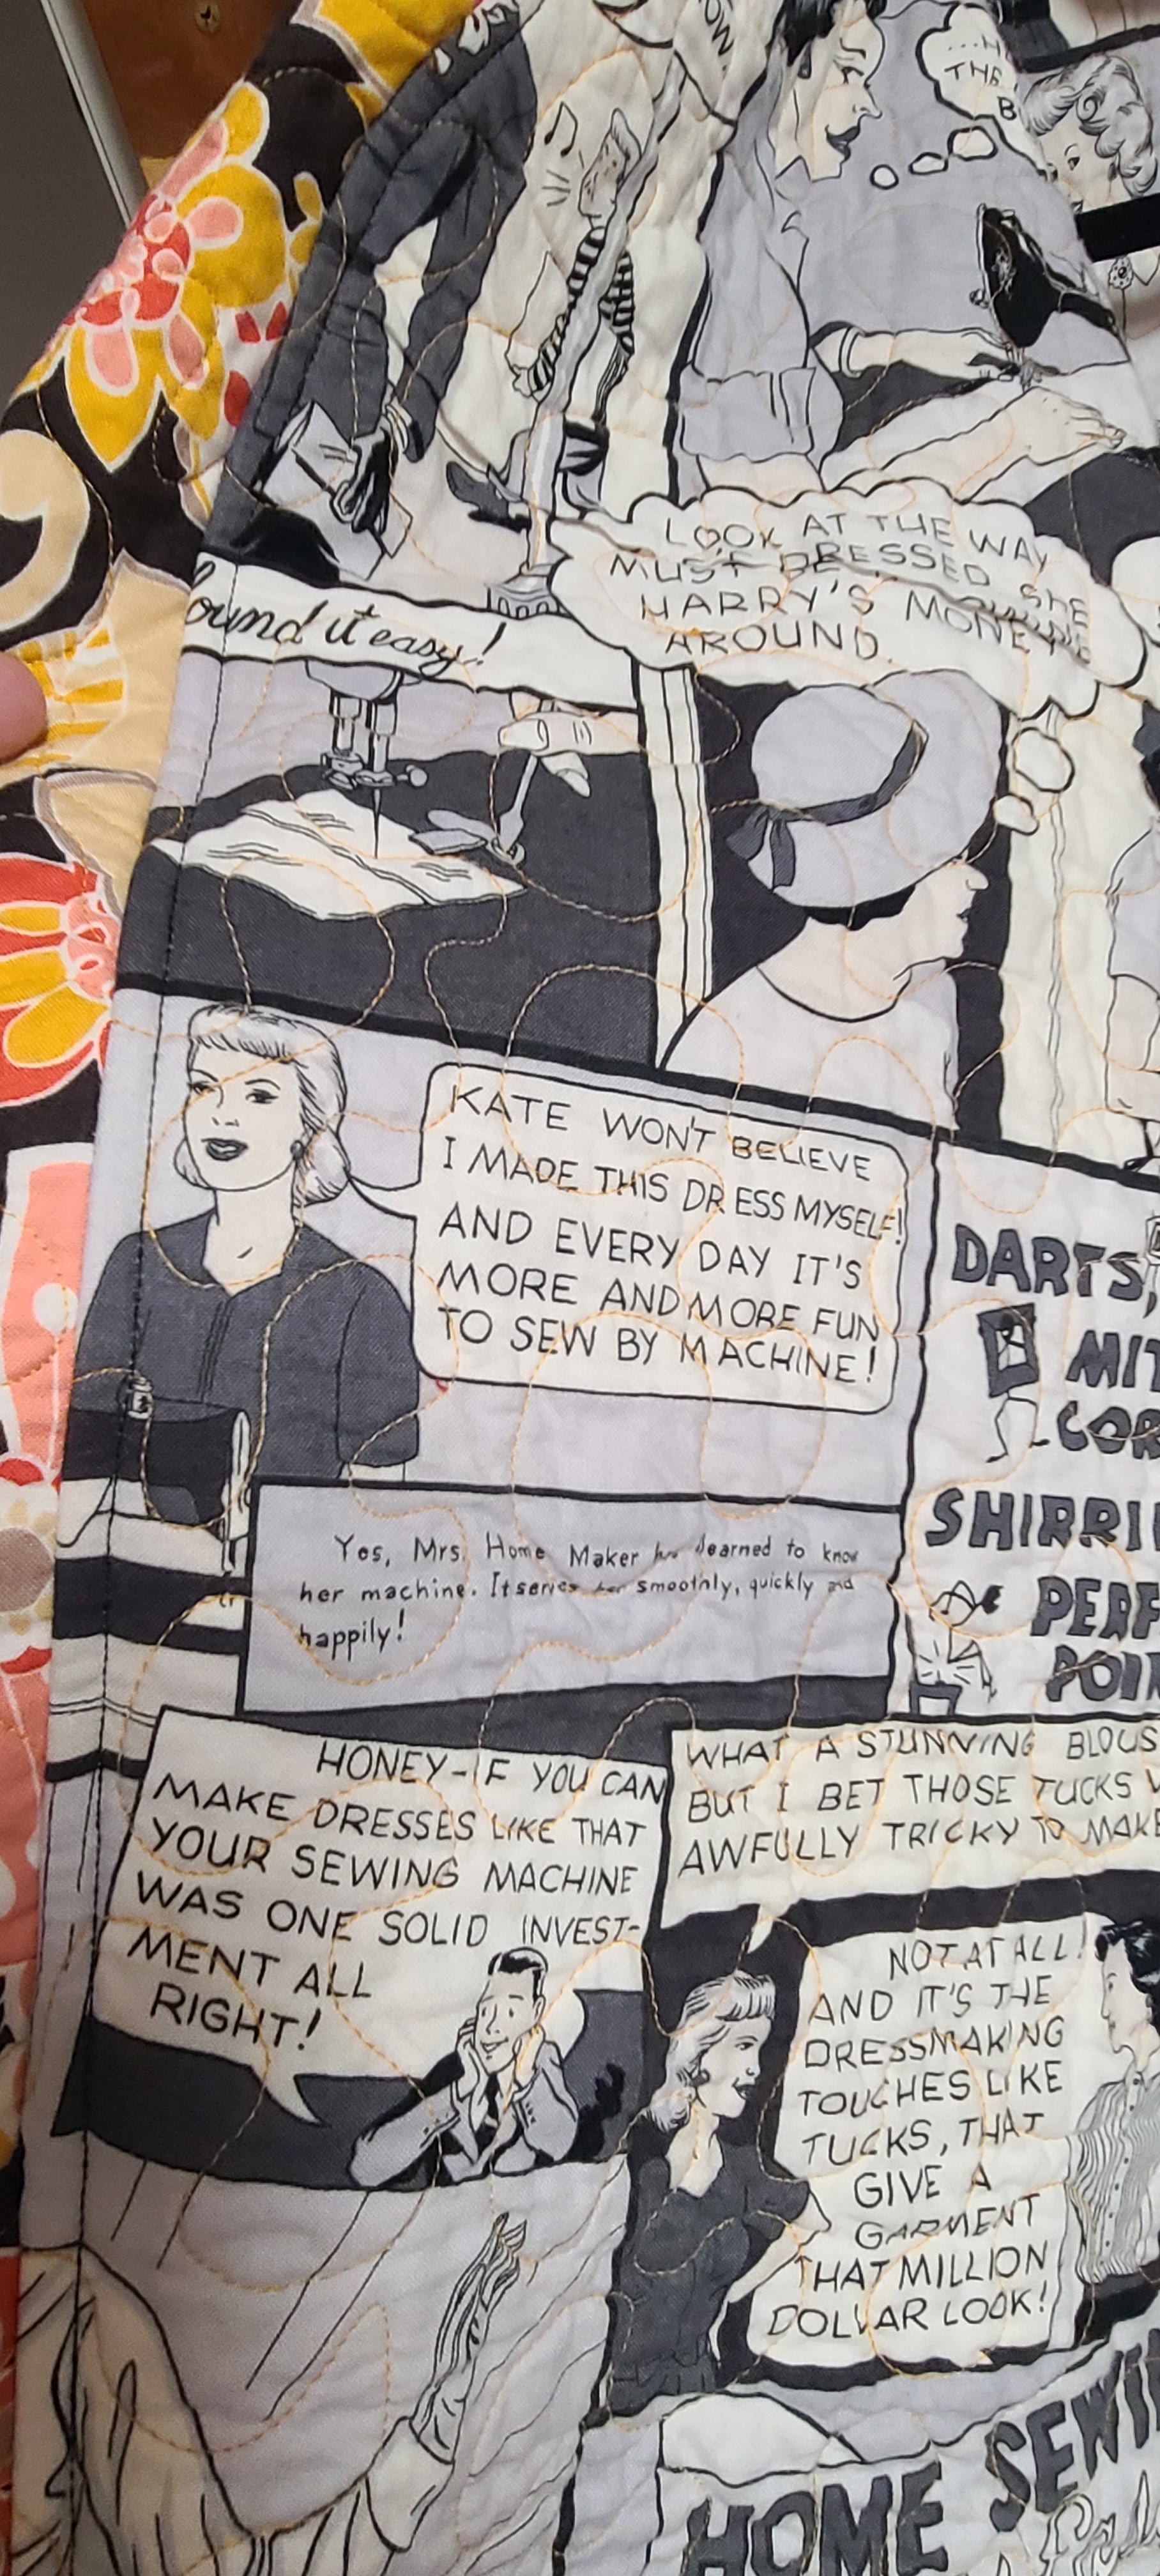 THE
B
LOOK AT THE WAY
MUST DRESSED SHE
HARRY'S MONEY
AROUND.
ound it easy!
KATE WON'T BELIEVE
I MADE THIS DRESS MYSELF!
AND EVERY DAY IT'S
MORE AND MORE FUN
TO SEW BY MACHINE!
DARTS,
MIT
COR
SHIRRI
PERF
POIN
Yes, Mrs. Home Maker has learned to know
her machine. It serves her smoothly, quickly and
happily!
HONEY-IF YOU CAN
MAKE DRESSES LIKE THAT
YOUR SEWING MACHINE
WAS ONE SOLID INVEST-
MENT ALL
RIGHT!
WHAT A STUNNING BLOUS
BUT I BET THOSE TUCKS W
AWFULLY TRICKY TO MAKE
NOT AT ALL!
AND IT'S THE
DRESSMAKING
TOUCHES LIKE
TUCKS, THAT
GIVE A
GARMENT
THAT MILLION
DOLLAR LOOK!
HOME SEWIN